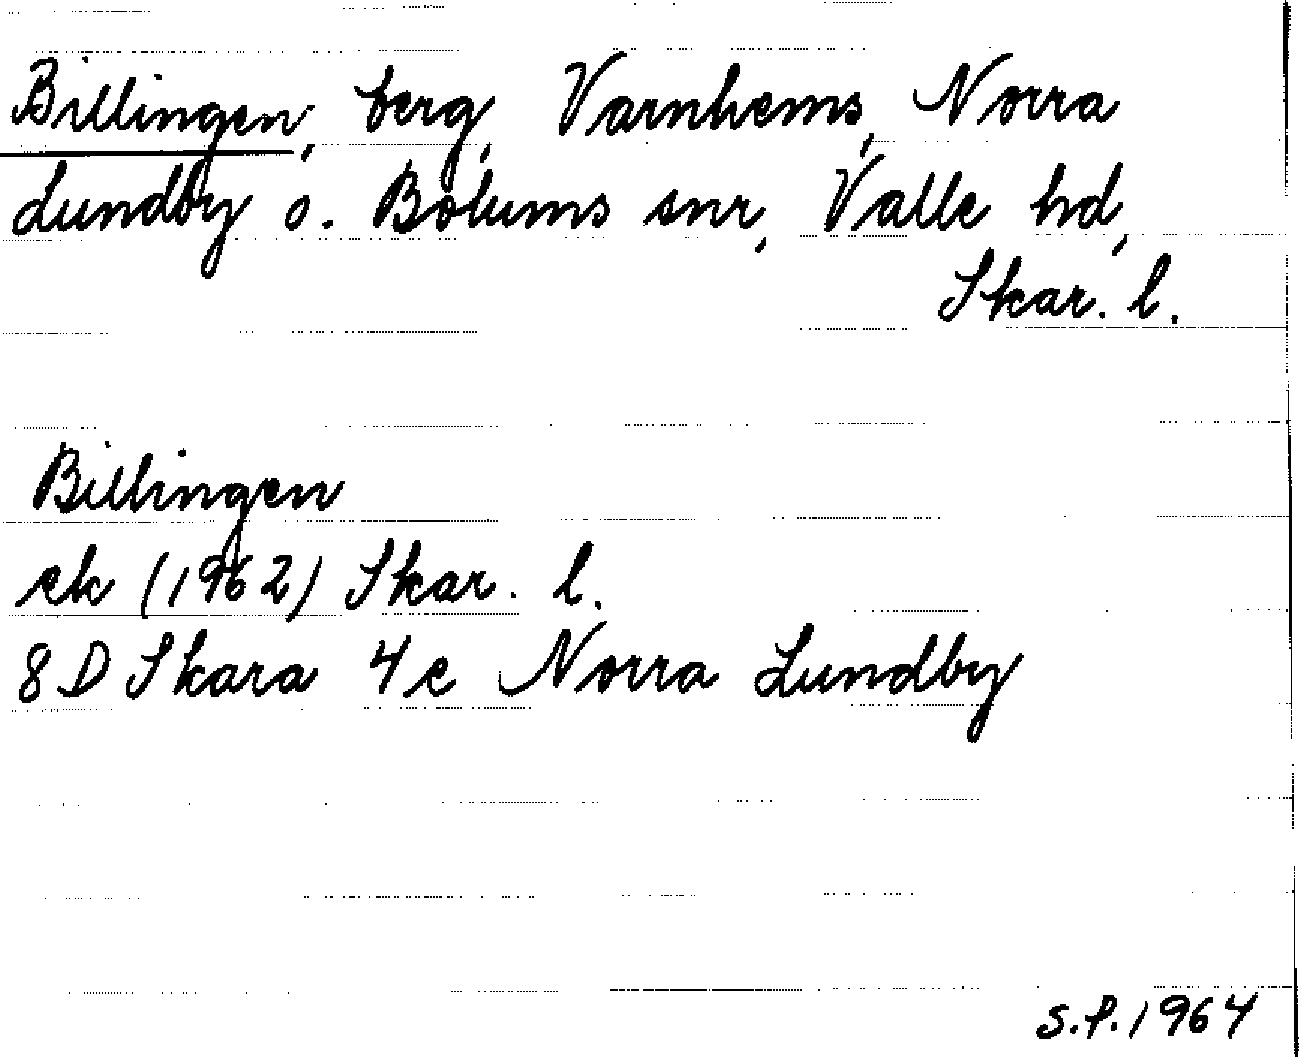 Billingen, berg, Varnhems, Norra
Lundby o. Bolums snr, Valle hd,
Skar. l.
Billingen
ek (1962) Skar. l.
8 D Skara 4 e Norra Lundby
S.P. 1964